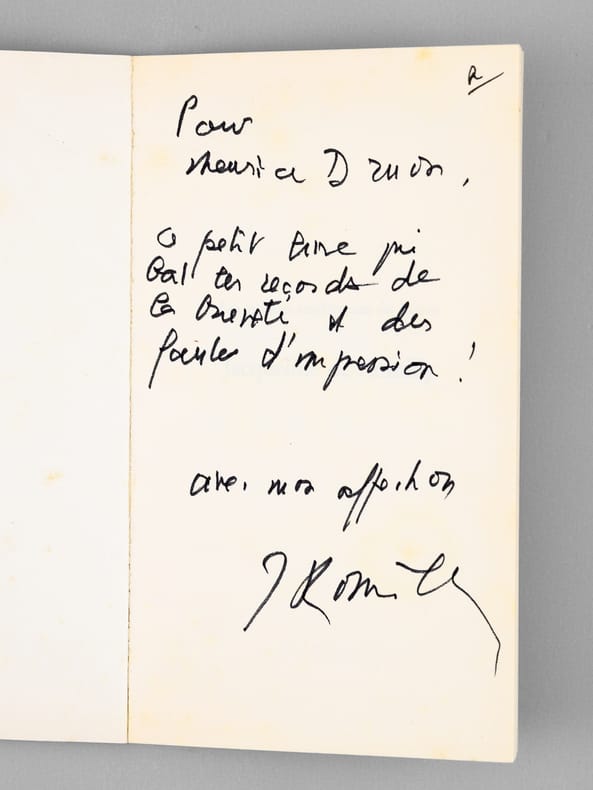 R
Pour
Maurice Druon,
ce petit livre qui
bat les records de
la brieveté et des
fautes d'impression !
avec mon affection
J Romilly